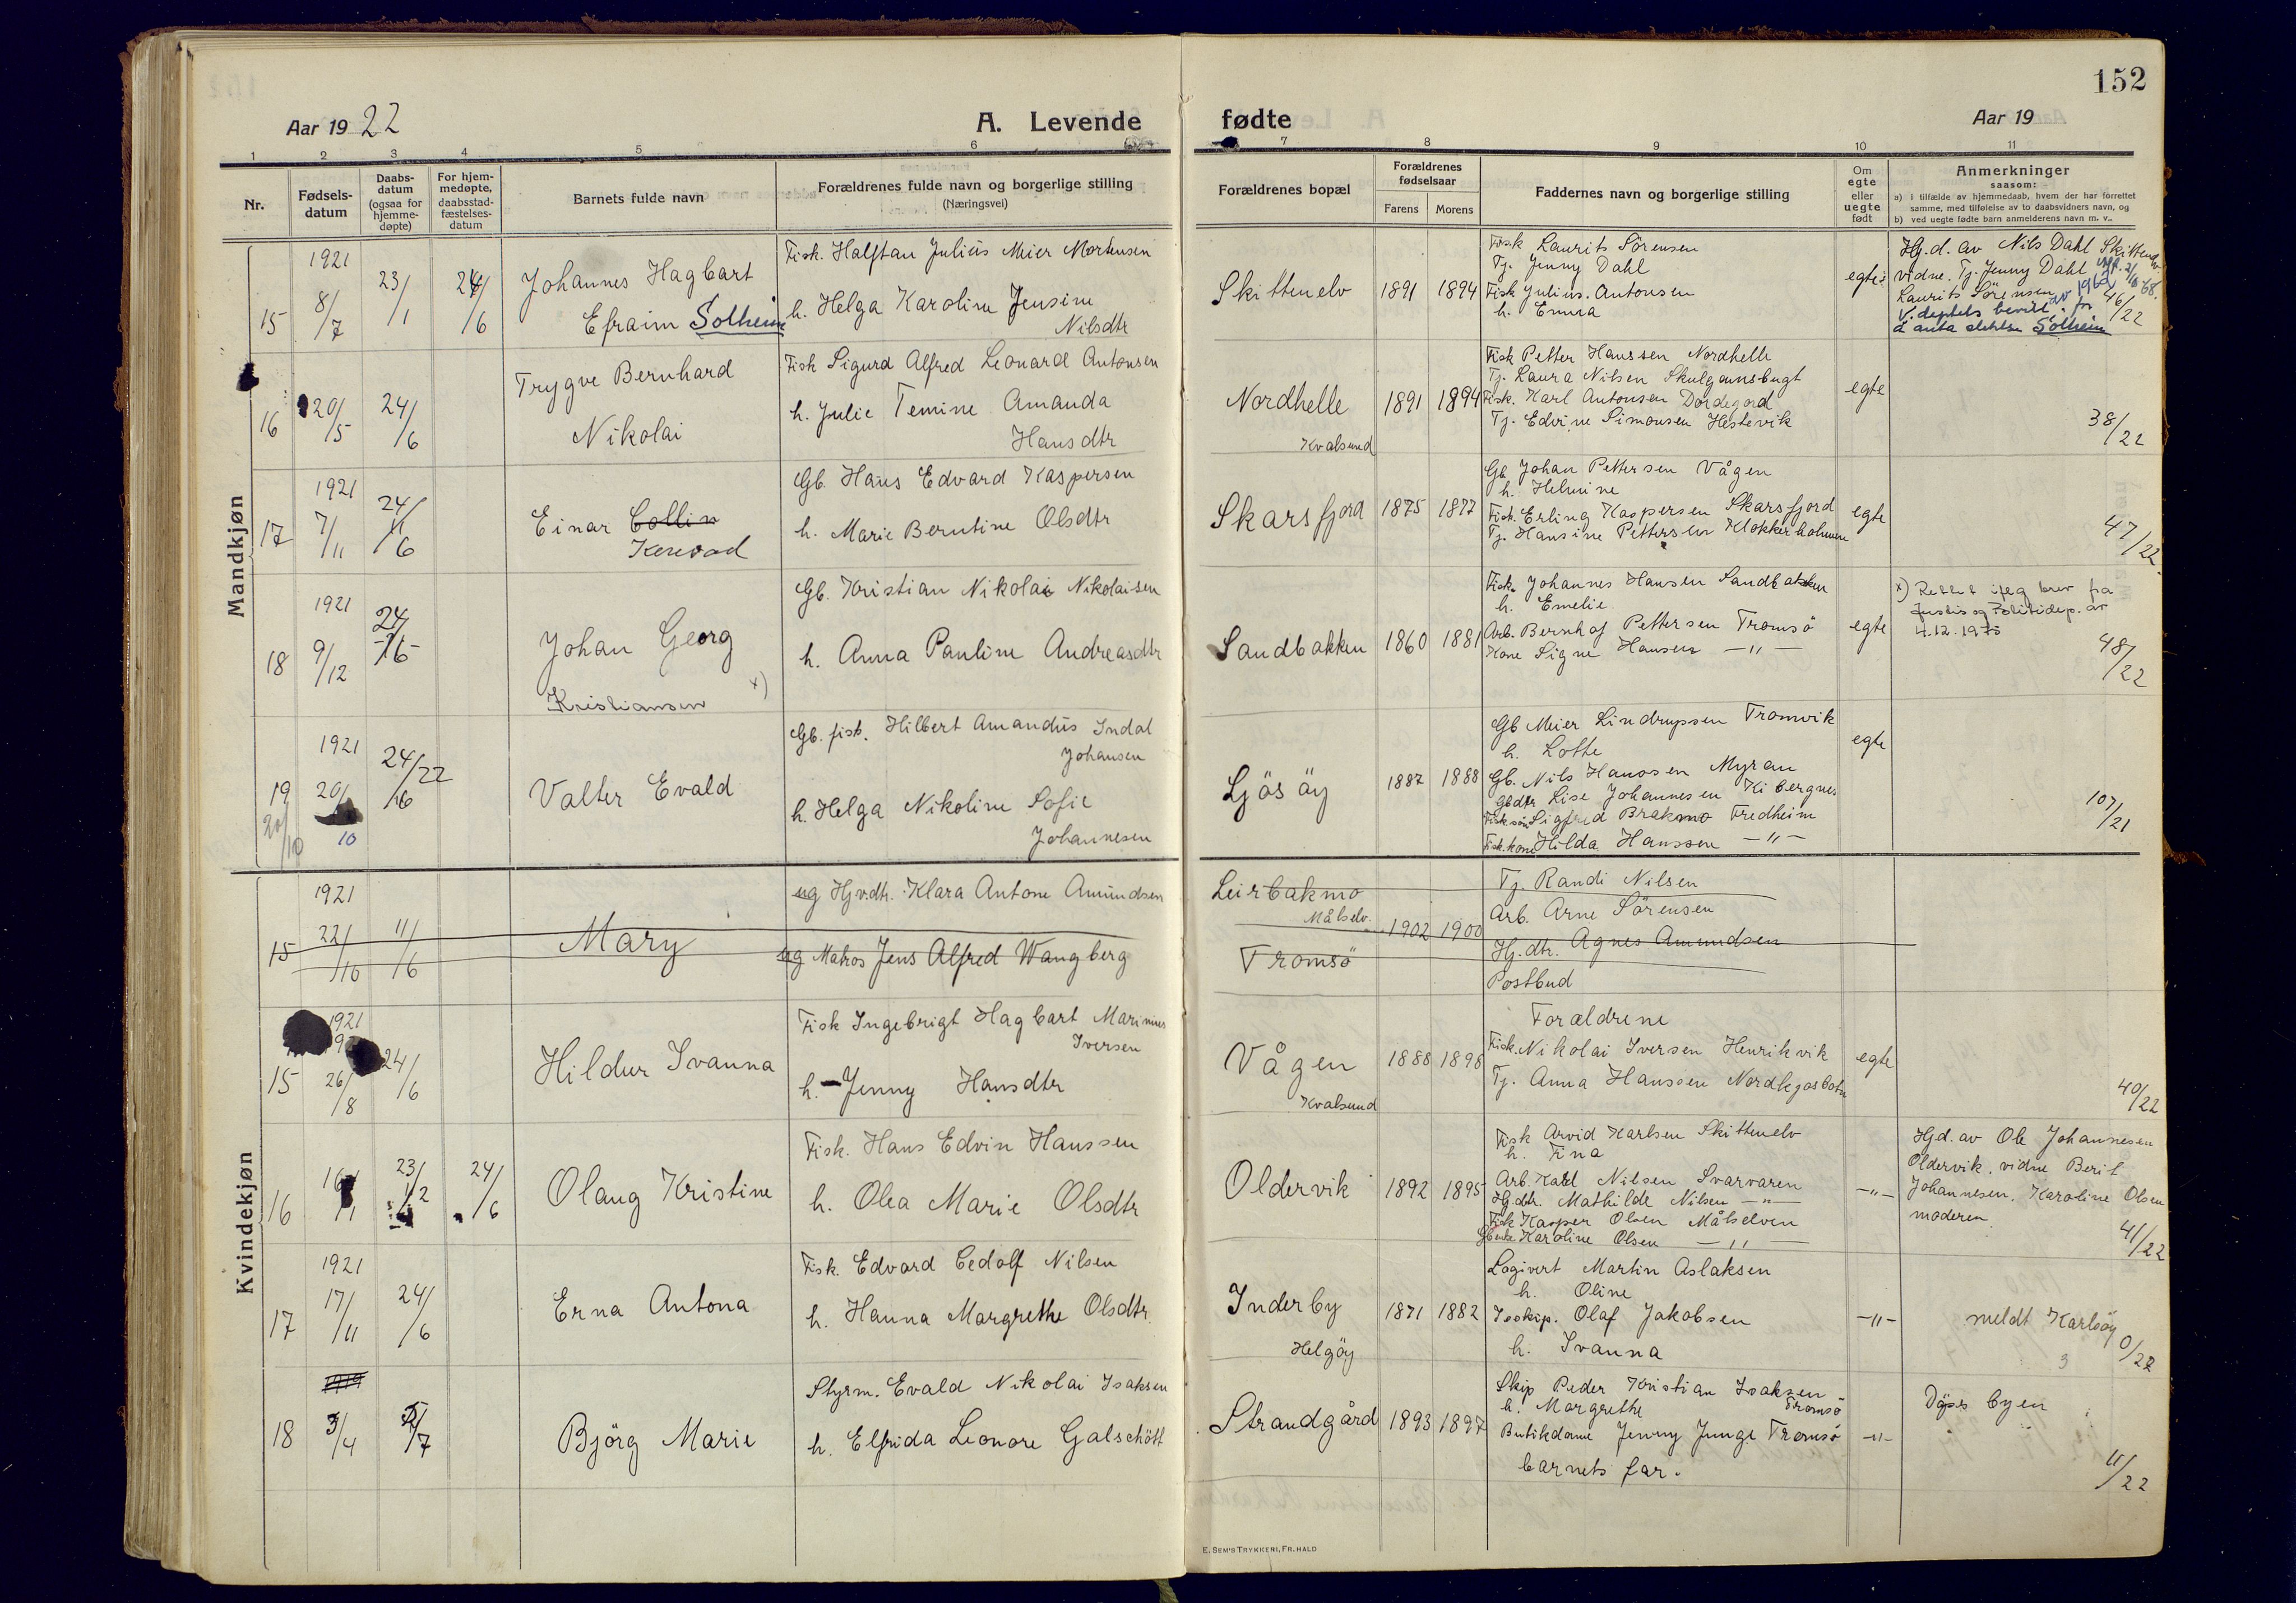 152
Aar 1922
A. Levende
fødte
Aar 19
1 2 3 4 5 6 7 8 9 10 11
Nr.
Fødsels-
datum
Daabs-
datum
(ogsaa for
hjemme-
døpte)
For hjem-
medøpte,
daabsstad-
fæstelses-
datum
Barnets fulde navn
Forældrenes fulde navn og borgerlige stilling
(Næringsvei)
Forældrenes bopæl
Forældrenes
fødselsaar
Farens Morens
Faddernes navn og borgerlige stilling
Om
egte
eller
uegte
født
Anmerkninger
saasom:
a) i tilfælde av hjemmedaab, hvem der har forrettet
samme, med tilføielse av to daabsvidners navn, og
b) ved uegte fødte barn anmelderens navn m. v..
Mandkjøn
15
1921
8/7
23/1
24/6
Johannes Hagbart
Efraim Solheim
Fisk. Halftan Julius Meier Mortensen
h. Helga Karoline Jensine
Nilsdtr
Skittenelv
1891 1894
Fisk Laurits Sörensen
Tj. Jenny Dahl
Fisk Julius. Antonsen
h. Emma
egte
Hj.d. av Nils Dahl Skittenelv
vidne. Tj. Jenny Dahl
Laurits Sörensen
Solheim
46/22
16
20/5
24/6
Trygve Bernhard
Nikolai
Fisk Sigurd Alfred Leonard Antonsen
h. Julie Temine Amanda
Hansdtr
Nordhelle
Kvalsund
1891 1894
Fisk Petter Hanssen Nordhelle
Tj. Laura Nilsen Skulgamsbugt
Fisk. Karl Antonsen
Tj. Edvine Simonsen Hestevik
egte
38/22
17
1921
7/11
24/6
Einar Collin
Gb. Hans Edvard Kaspersen
h. Marie Berntine Olsdtr
Skarsfjord
1875 1877
Gb. Johan Pettersen Vågen
h. Helmine
Fisk. Erling Kaspersen Skarsfjord
Tj. Hansine Pettersen Klokkerholmen
egte
47/22
18
1921
9/12
24/6
Johan Georg
Kristiansen x)
Gb. Kristian Nikolai Nikolaisen
h. Anna Pauline Andreasdtr
Sandbakken
1860 1881
Fisk. Johannes Hansen Sandbakken
h. Emelie
Arb. Bernhof Pettersen Tromsö
Kone Signe Hansen -"-
egte
x) Rettet ifølg brev fra
Justis og Politidep. av
4.12.1975
48/22
19
20/10
1921
20/
10
24/22
6
Valter Evald
Gb. fisk. Hilbert Amandus Indal
Johansen
h. Helga Nikoline Sofie
Johannesen
Ljösöy
1887 1888
Gb Meier Lindrupsen Tromvik
h. Lotte
Gb. Nils Hanssen Myran
Gbdtr Lise Johannesen Kibergnes
Fisk.sön Sigfred Brakmo Fredheim
Fisk.kone Hilda Hanssen -"-
egte
107/21
Kvindekjøn
15
1921
22/10
11/6
Mary
ug Hjv.dtr. Klara Antone Amundsen
ug Matros Jens Alfred Wangberg
Leirbakmo
Målselv.
Tromsö
1902 1900
Tj. Randi Nilsen
Arb. Arne Sörensen
Hj.dtr. Agnes Amundsen
Postbud
15
1921
26/8
24/6
Hildur Ivanna
Fisk Ingebrigt Hagbart Marinius
Iversen
h. Jenny Hansdtr
Vågen
Kvalsund
1888 1898
Forældrene
Fisk. Nikolai Iversen Henrikvik
Tj. Anna Hanssen
egte
40/22
16
16/1
23/2
24/6
Olaug Kristine
Fisk. Hans Edvin Hanssen
h. Olea Marie Olsdtr
Oldervik
1892 1895
Fisk Arvid Karlsen Skittenelv
h. Fina
Arb. Karl Nilsen Svarvaren
Hj.dtr. Mathilde Nilsen -"-
Fisk Kasper Olsen Målselven
Karoline Olsen -"-
-"-
Hjd. av Ole Johannesen
Oldervik. vidne Berit
Johannesen, Karoline Olsen
moderen
41/22
17
1921
17/11
24/6
Erna Antona
Fisk. Edvard Cedolf Nilsen
h. Hanna Margrethe Olsdtr.
Inderby
Helgöy
1871 1882
Logivert Martin Aslaksen
h. Oline
Isskip. Olaf Jakobsen
h. Ivanna
-"-
meldt Karlsöy
0/22
3
18
3/4
2/7
Björg Marie
Styrm. Evald Nikolai Isaksen
h. Elfrida Leonore Galschött
Strandgård
1893 1897
Skip Peder Kristian Isaksen
h. Margrethe Tromsö
Butikdame Jenny Junge Tromsö
barnets far.
-"-
Döps byen
11/22
E. SEM'S TRYKKERI, FR.HALD